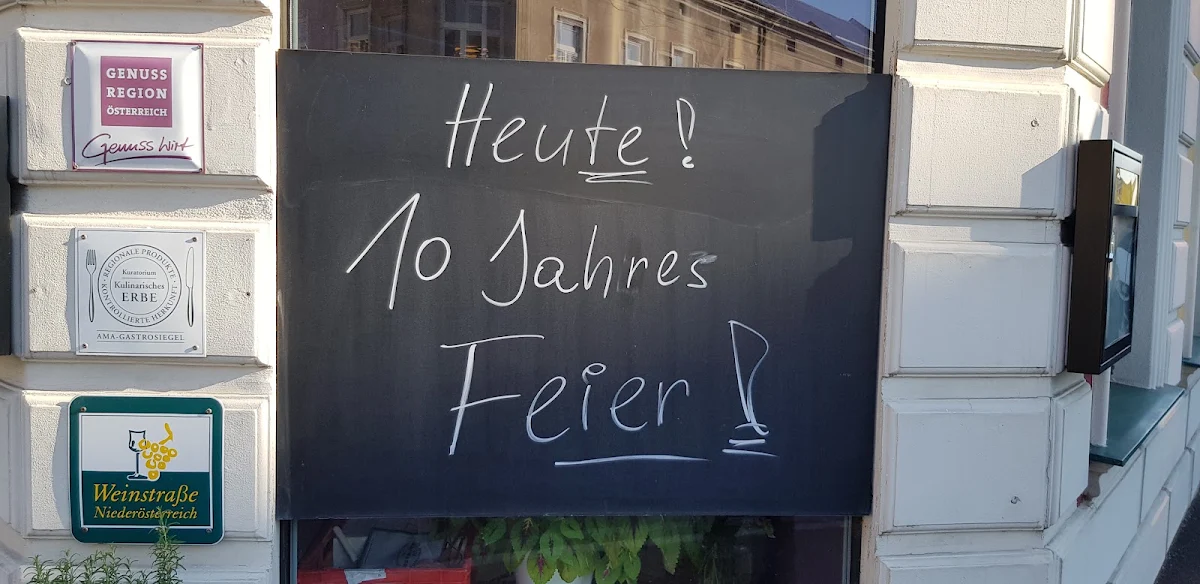 GENUSS
REGION
ÖSTERREICH
Genuss Wirt
REGIONALE PRODUKTE
KONTROLLIERTE HERKUNFT
Kuratorium
Kulinarisches
ERBE
AMA-GASTROSIEGEL
Weinstraße
Niederösterreich
Heute!
10 Jahres
Feier!